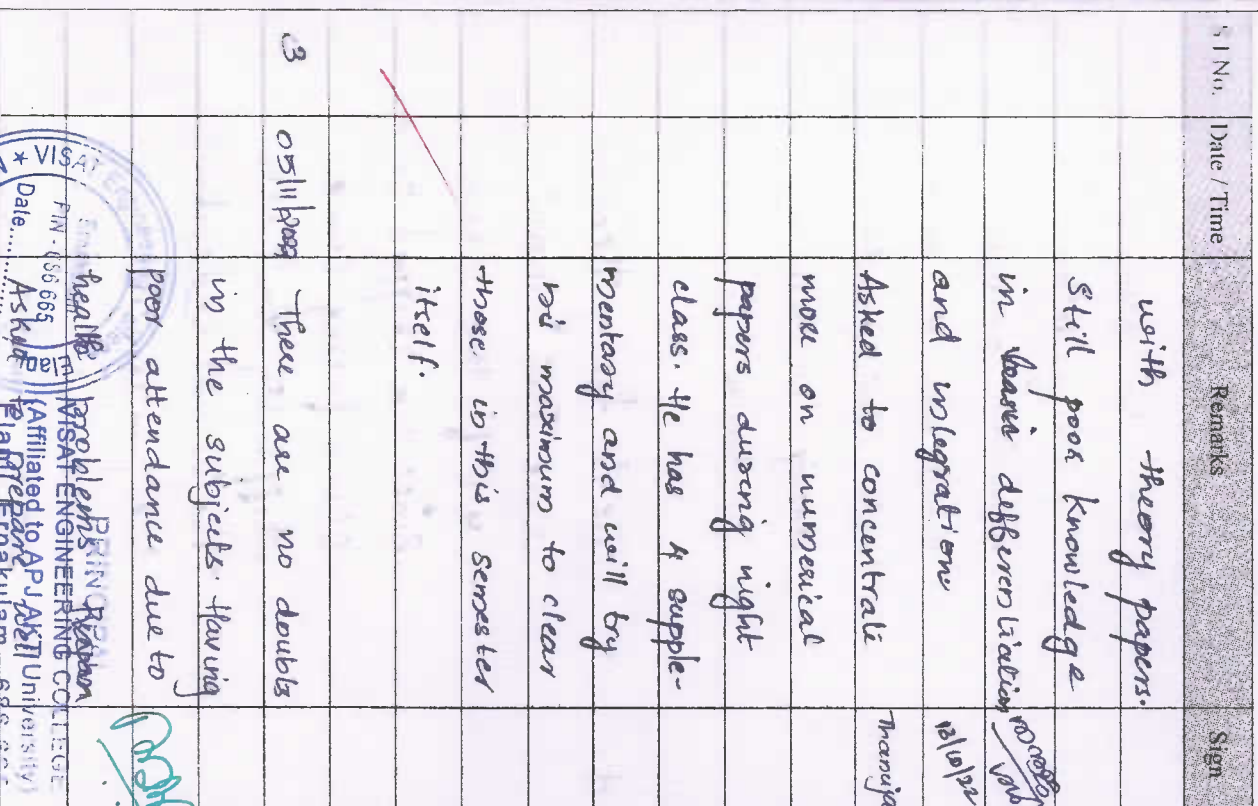 Sl No. Date / Time Remarks Sign
with theory papers.
Still poor knowledge
in differentiation
and integration 13/10/22
Asked to concentrate Thanuja
more on numerical
papers during night
class. He has 4 supple-
mentary and will try
his maximum to clear
those in this semester
itself.
3 There are no doubts
in the subjects. Having
poor attendance due to
health problems.
Asked to prepare
★ VISAT
PIN - 686 665
Date......
PRINCIPAL
VISAT ENGINEERING COLLEGE
(Affiliated to APJ AKT University)
Ernakulam - 686 665